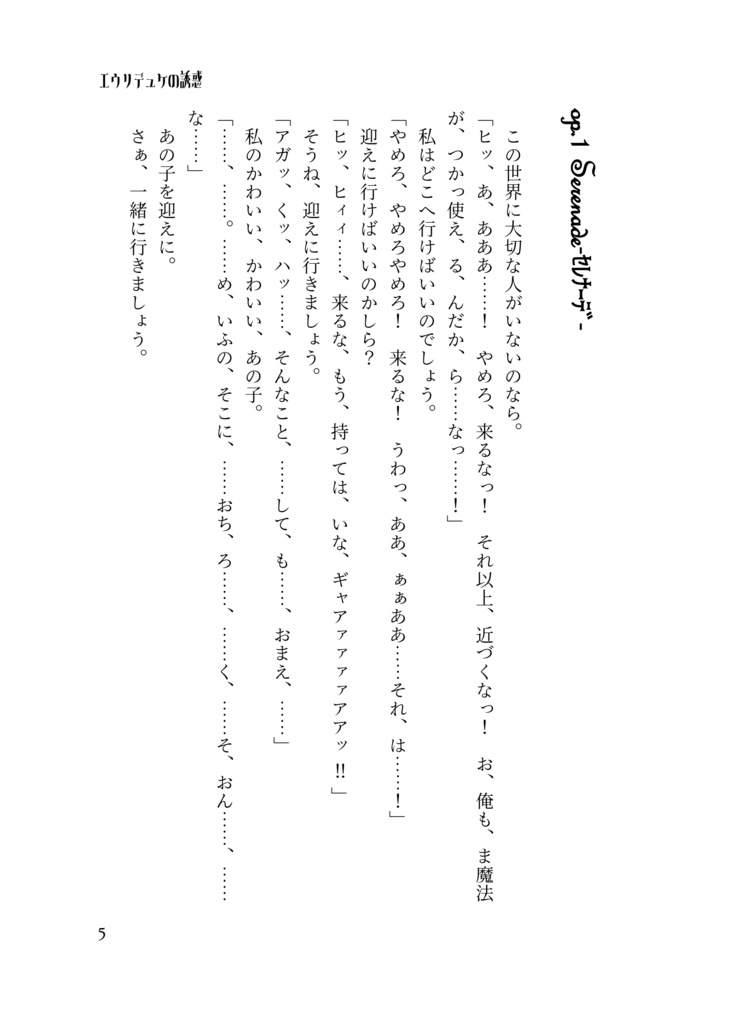 エウリデュケの誘惑
op.1 Serenade-セレナーデ-
この世界に大切な人がいないのなら。
「ヒッ、あ、あああ……！　やめろ、来るなっ！　それ以上、近づくなっ！　お、俺も、ま魔法
が、つかっ使え、る、んだか、ら……なっ……！」
私はどこへ行けばいいのでしょう。
「やめろ、やめろやめろ！　来るな！　うわっ、ああ、ぁぁああ……それ、は……！」
迎えに行けばいいのかしら？
「ヒッ、ヒィィ……、来るな、もう、持っては、いな、ギャアァァァァアアッ!!」
そうね、迎えに行きましょう。
「アガッ、くッ、ハッ……、そんなこと、……して、も……、おまえ、……」
私のかわいい、かわいい、あの子。
「……、……。……め、いふの、そこに、……おち、ろ……、……く、……そ、おん……、……
な……」
あの子を迎えに。
さぁ、一緒に行きましょう。
5